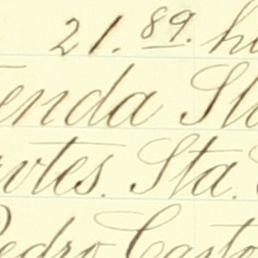 21. 89.
enda
rtes. Sta.
Pedro Casto